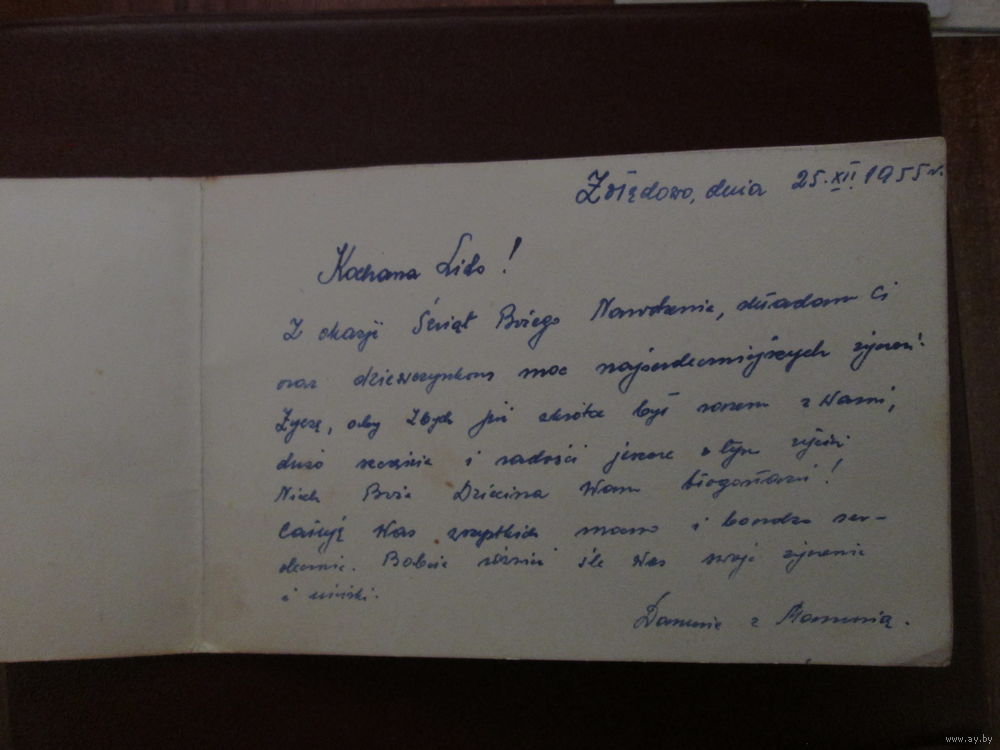 dnia 25.XII.1955 r.
Kochana Lido!
Z okazji Świąt Bożego Narodzenia, składam Ci
oraz dziewczynkom moc najserdeczniejszych życzeń!
Życzę, aby już wkrótce był razem z Wami,
dużo szczęścia i radości jeszcze w tym życiu
Niech Boża Dziecina Wam błogosławi!
Całuję Was wszystkich mocno i bardzo ser-
decznie. Babcia również śle Was swoje życzenia
i uściski.
Danusia z Mamusią.
www.ay.by